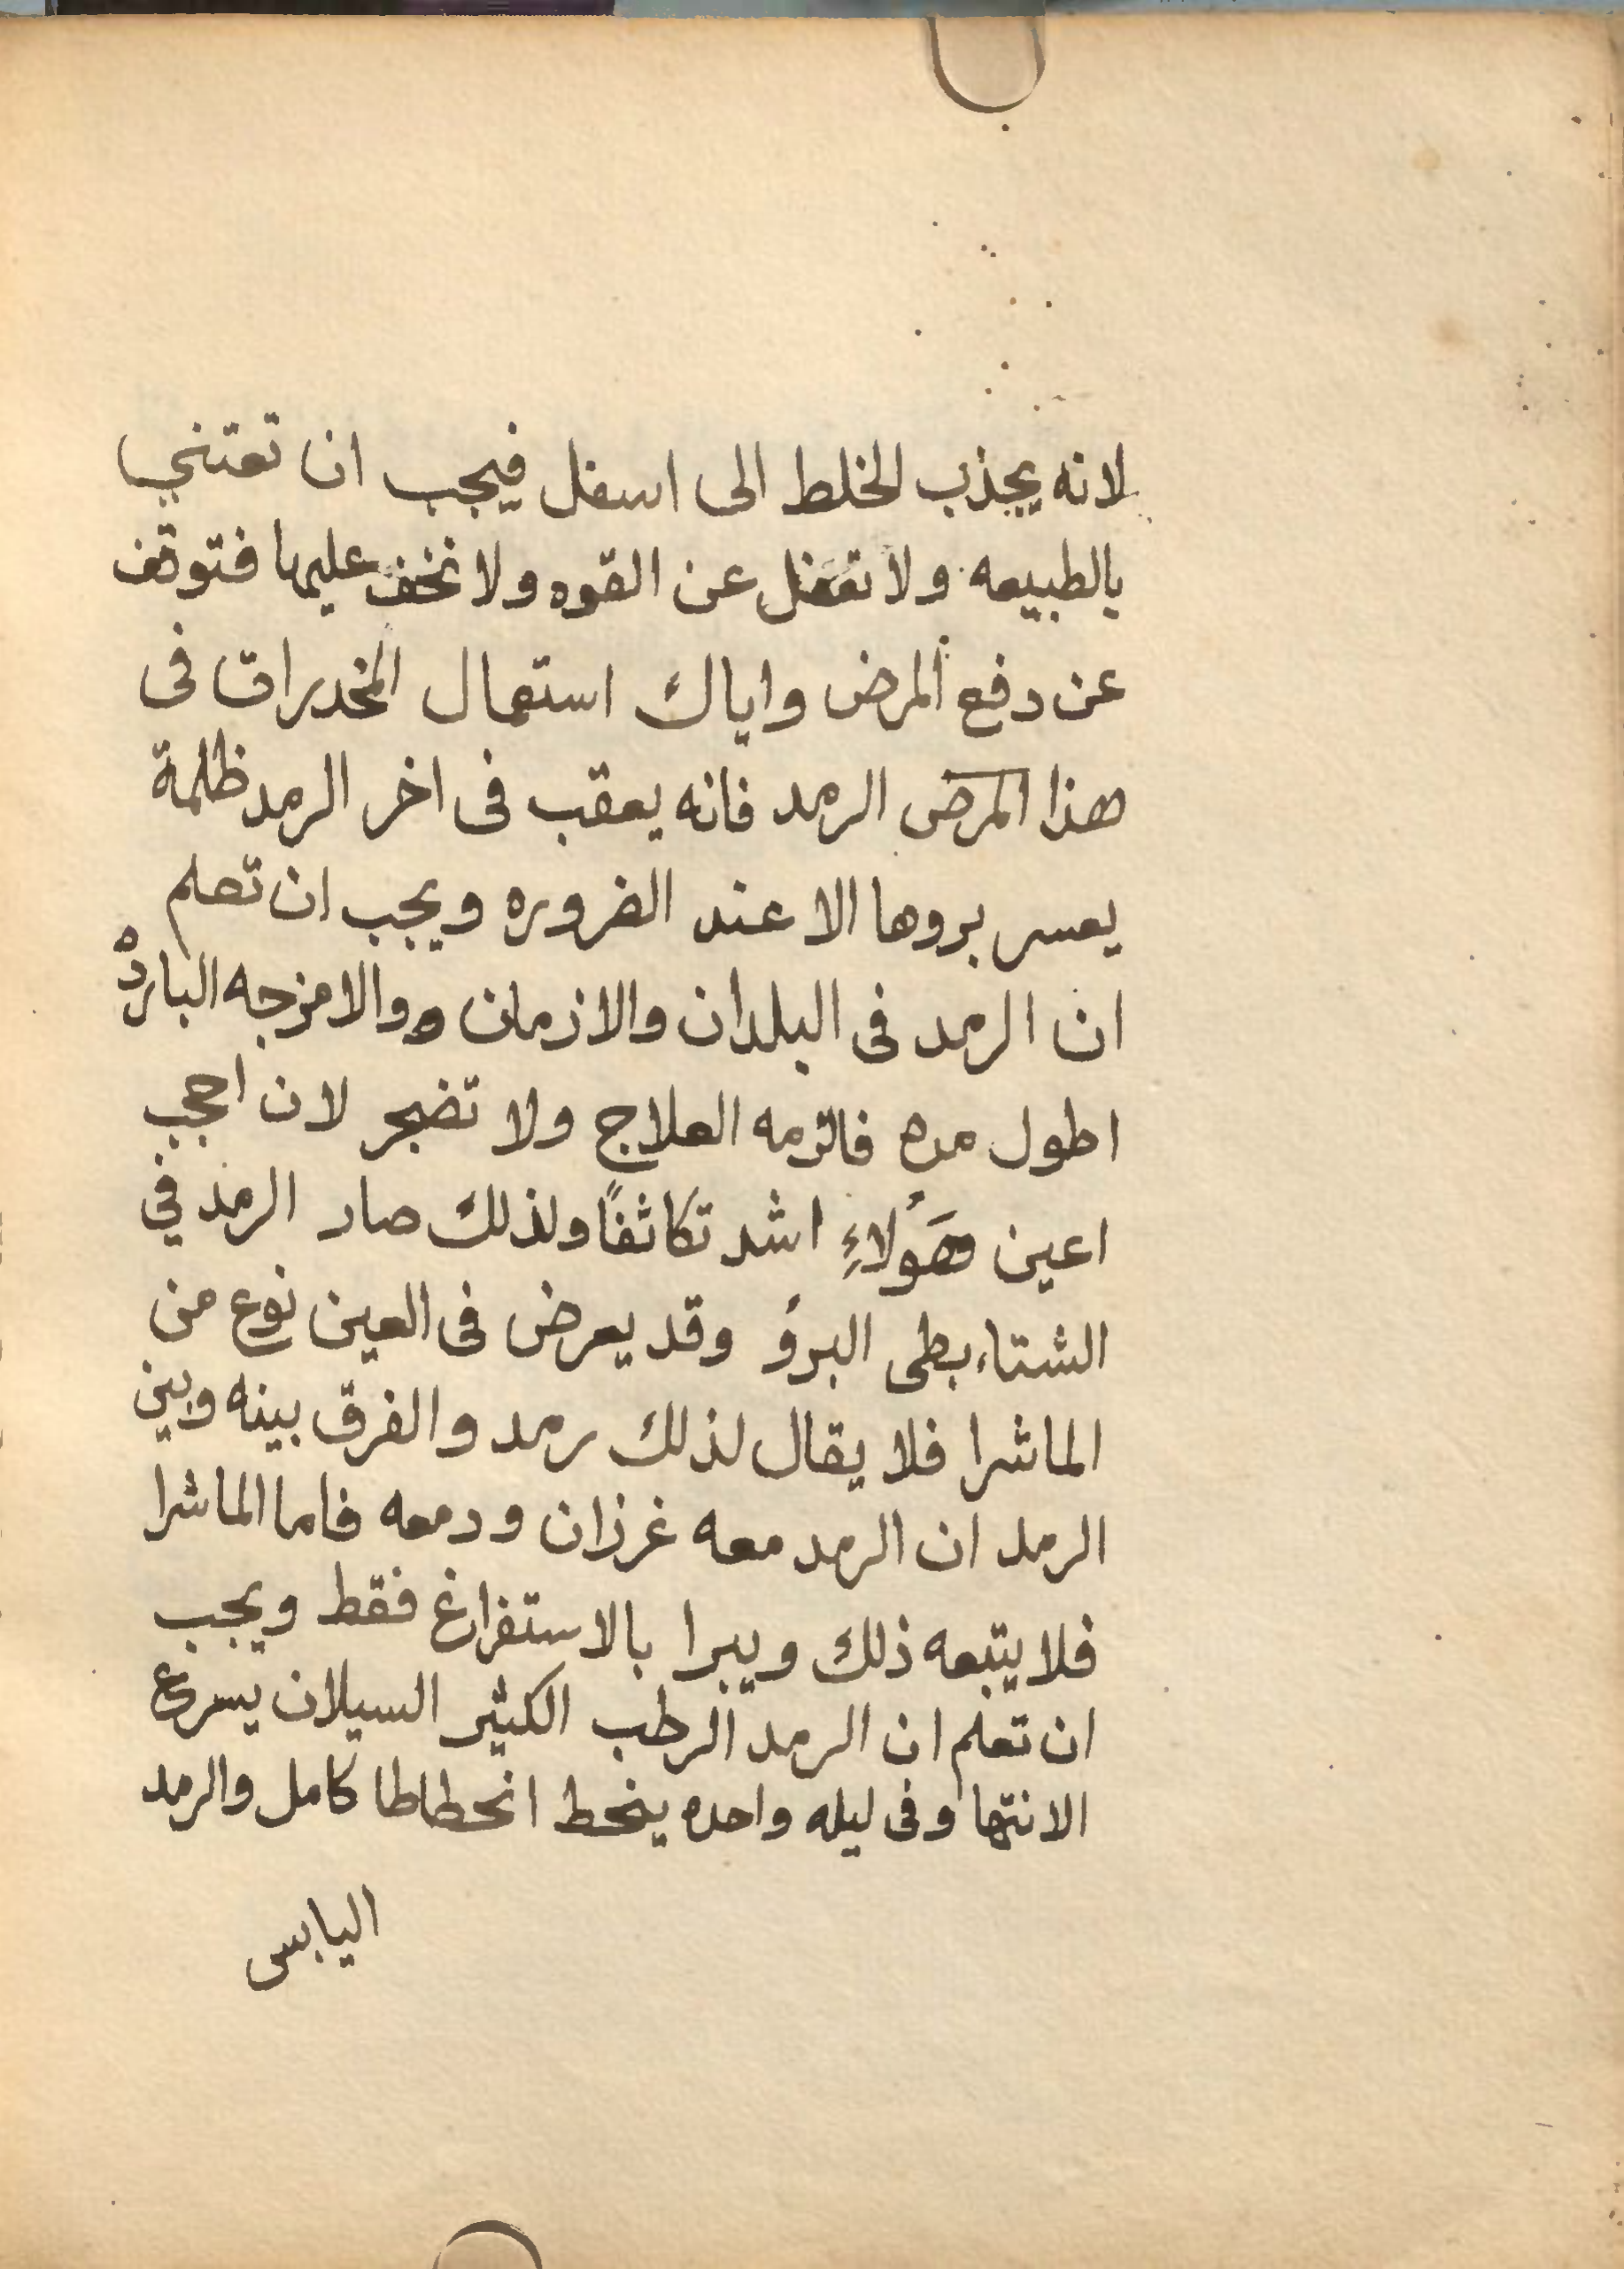 لانه يجذب الخلط الى اسفل فيجب ان تعتني
بالطبيعه ولا تغفل عن القوه ولا تخف عليها فتوقف
عن دفع المرض واياك استعمال المخدرات فى
هذا المرض الرمد فانه يعقب فى اخر الرمد ظلمة
يعسر بروها الا عند الضروره ويجب ان تعلم
ان الرمد فى البلدان والازمان و والامزجه البارده
اطول مده فالزمه العلاج ولا تضجر لان احجب
اعين هَوُلاءِ اشد تكاثفًا ولذلك صار الرمد في
الشتاء بطى البرؤ وقد يعرض فى العين نوع من
الماشرا فلا يقال لذلك رمد والفرق بينه وبين
الرمد ان الرمد معه غرزان ودمعه فاما الماشرا
فلا يتبعه ذلك ويبرا بالاستفراغ فقط ويجب
ان تعلم ان الرمد الرطب الكثير السيلان يسرع
الانتها وفى ليله واحده ينحط انحطاطا كامل والرمد
اليابس